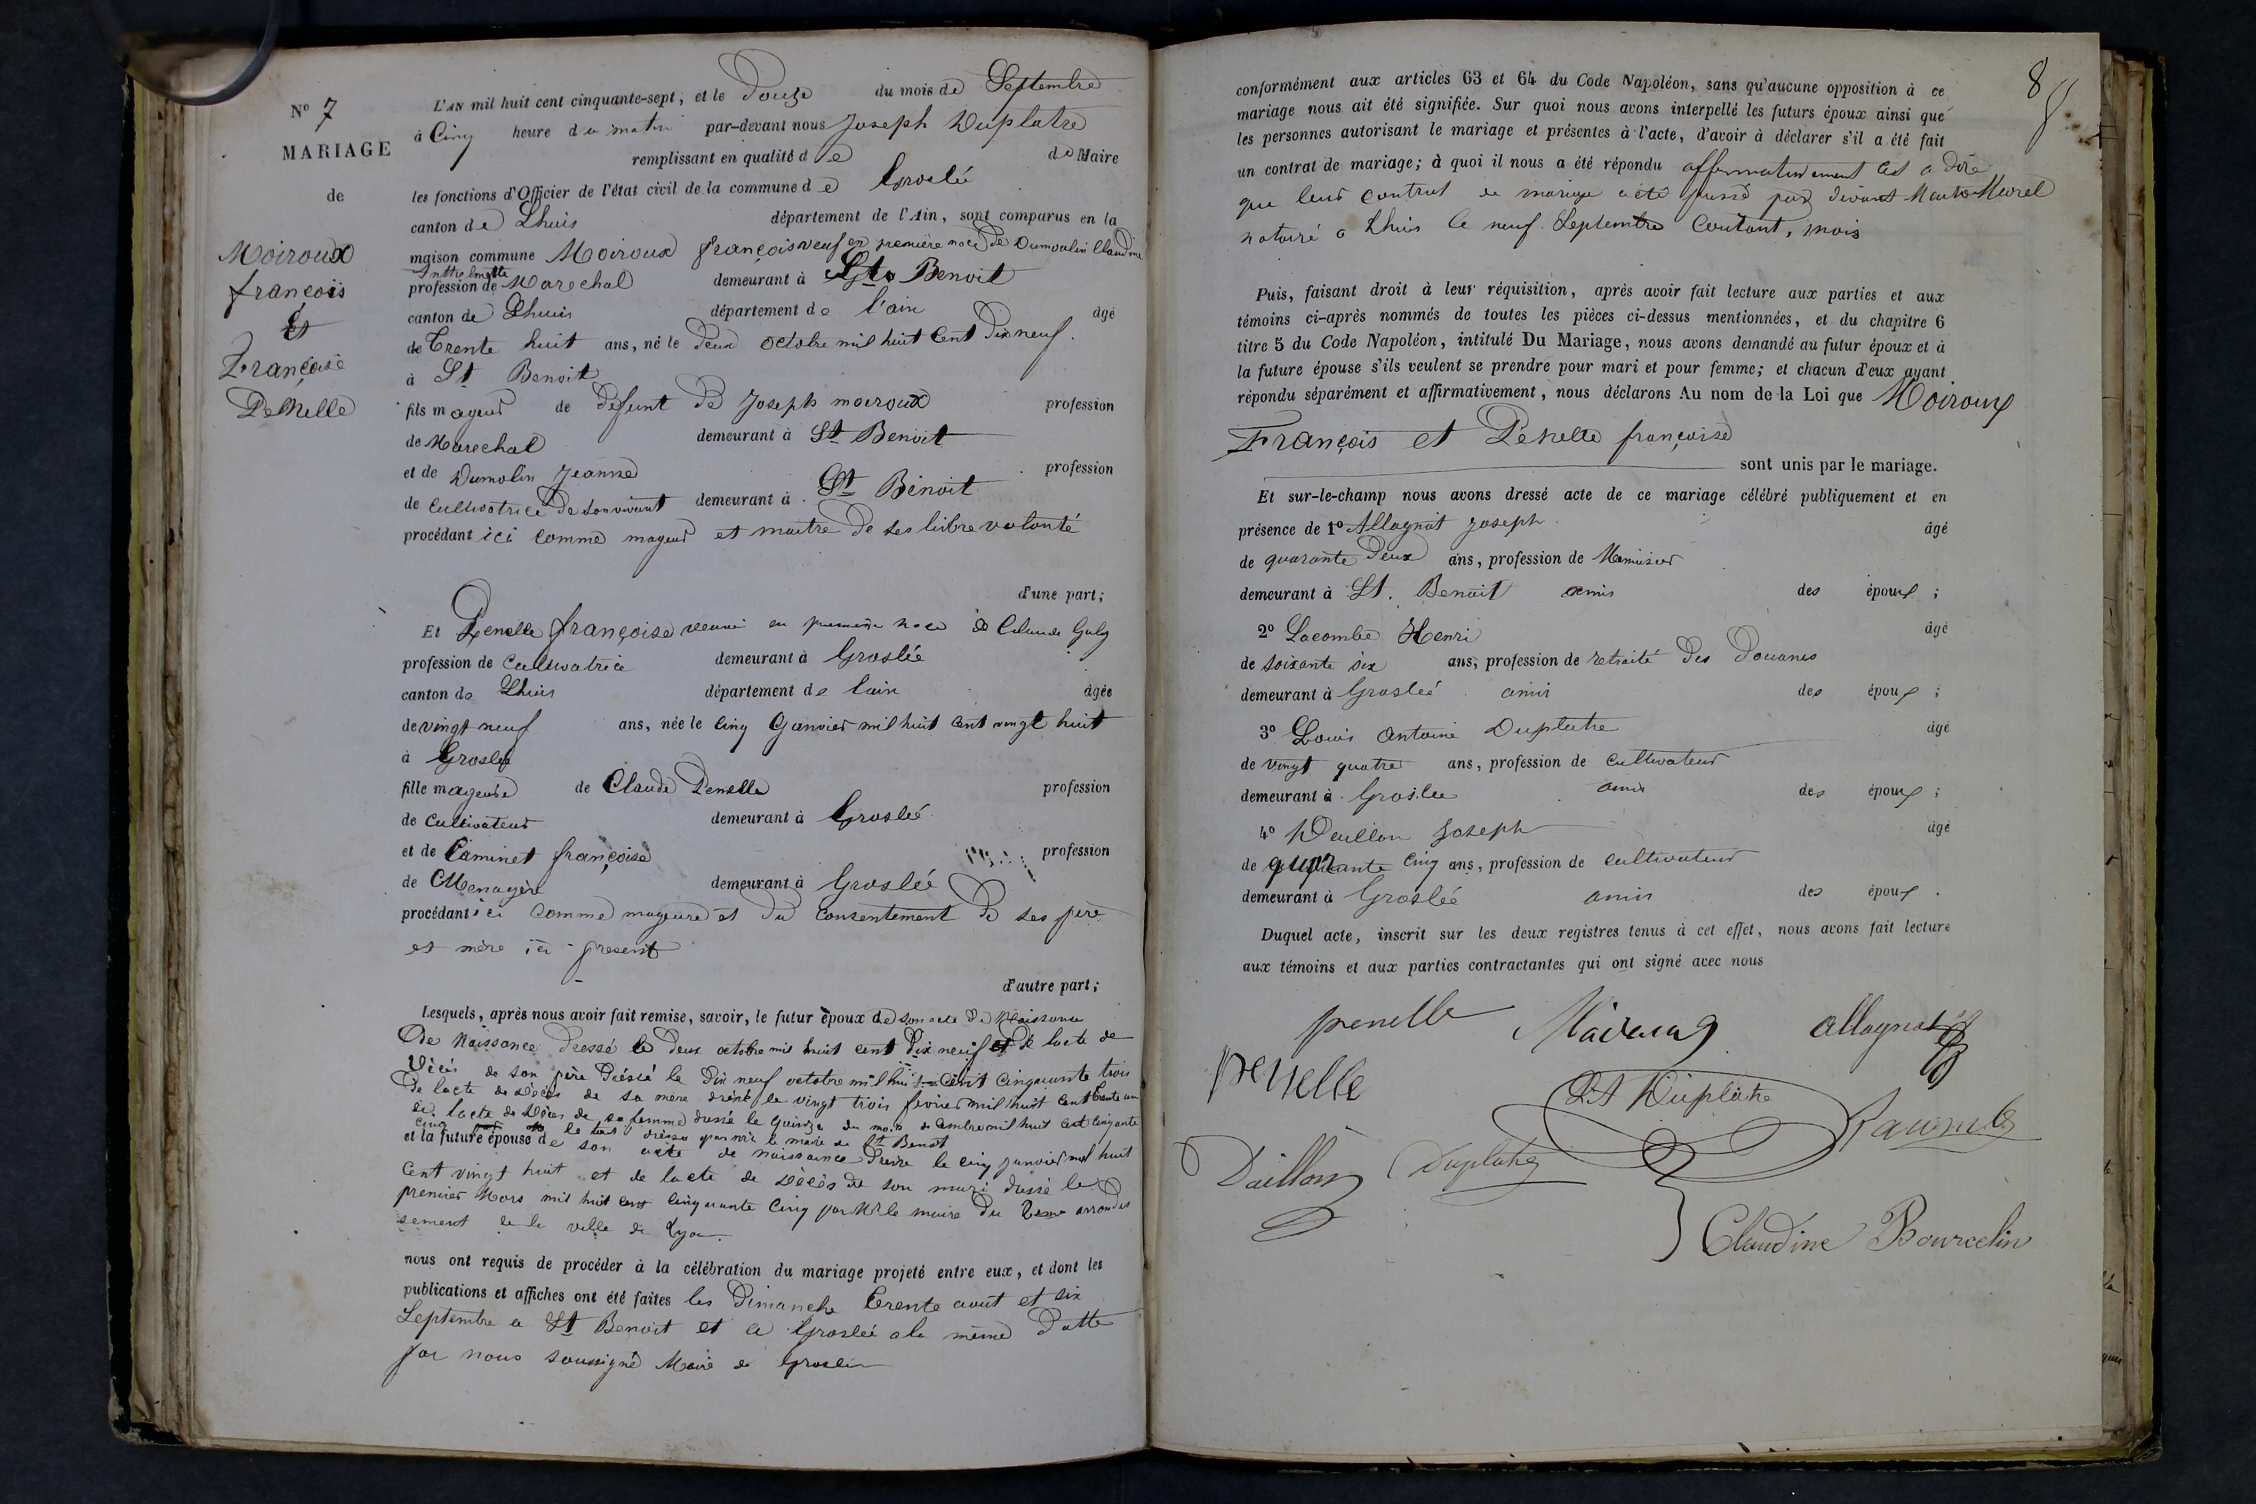 N° 7
MARIAGE
de
Moiroux
françois
Et
Françoise
Penelle
L'AN mil huit cent cinquante-sept, et le Douze du mois de Septembre
à Cinq heure du matin par-devant nous Joseph Duplatre
remplissant en qualité de de Maire
les fonctions d'Officier de l'état civil de la commune de Groslée
canton de Lhuis département de l'Ain, sont comparus en la
maison commune Moiroux françois veuf en première noce de Dumoulin Claudine
profession de Marechal demeurant à St Benoit
canton de Lhuis département de l'ain âgé
de Trente huit ans, né le Deux octobre mil huit Cent Dix neuf.
à St Benoit
fils mageur de defeunt de Joseph moiroux profession
de Marechal demeurant à St Benoit
et de Dumolin Jeanne profession
de Cultivatrice De son vivant demeurant à St Benoit
procédant ici comme mageur et maitre De ses libre volonté
d'une part;
Et Penelle françoise veuve en première noce de Claude Guly
profession de Cultivatrice demeurant à Groslée
canton de Lhuis département de lain âgée
de vingt neuf ans, née le Cinq Ganvier mil huit Cent vingt huit
à Groslée
fille mageure de Claude Penelle profession
de Cultivateur demeurant à Groslée
et de Caminet françoise profession
de Menagère demeurant à Groslée
procédant ici Comme mageure et Du Consentement De ses père
et mère ici present
d'autre part;
Lesquels, après nous avoir fait remise, savoir, le futur époux de son acte De Naissance
De Naissance Dressé le Deux octobre mil huit cent Dix neuf et De lacte de
Décès de son père Dréssé le Dix neuf octobre mil huit Cent Cinquante trois
De lacte de Décès de sa mère dréssé le vingt trois fevrier mil huit Cent trente un
de lacte de Décès de sa femme dressé le quinze du mois de cembre mil huit Cent Cinquante
cinq le tout dressé par mr le maire de St Benoit
et la future épouse de son acte de naissance Dressé le Cinq janvier mil huit
Cent vingt huit et de lacte de Décès de son mari dressé le
premier Mars mil huit Cent Cinquante Cinq par Mr le maire Du 2eme arrondis
sement de la ville de Lyon.
nous ont requis de procéder à la célébration du mariage projeté entre eux, et dont les
publications et affiches ont été faites les Dimanche trente aout et six
Septembre a St Benoit et a Groslée a la même Datte
par nous soussigné Maire de Groslée
8
conformément aux articles 63 et 64 du Code Napoléon, sans qu'aucune opposition à ce
mariage nous ait été signifiée. Sur quoi nous avons interpellé les futurs époux ainsi que
les personnes autorisant le mariage et présentes à l'acte, d'avoir à déclarer s'il a été fait
un contrat de mariage; à quoi il nous a été répondu affermativement Cest a Dire
que leur Contrat de mariage a été passé par devant Maitre Murel
notaire a Lhuis le neuf Septembre Courant, mois
Puis, faisant droit à leur réquisition, après avoir fait lecture aux parties et aux
témoins ci-après nommés de toutes les pièces ci-dessus mentionnées, et du chapitre 6
titre 5 du Code Napoléon, intitulé Du Mariage, nous avons demandé au futur époux et à
la future épouse s'ils veulent se prendre pour mari et pour femme; et chacun d'eux ayant
répondu séparément et affirmativement, nous déclarons Au nom de la Loi que Moiroux
François et Penelle françoise
sont unis par le mariage.
Et sur-le-champ nous avons dressé acte de ce mariage célébré publiquement et en
présence de 1° Allagnat Joseph âgé
de quarante Deux ans, profession de Menuisier
demeurant à St. Benoit amis des époux;
2° Lacombe Henri âgé
de soixante six ans, profession de retraité Des Douanes
demeurant à Groslée amis des époux;
3° Louis Antoine Duplatre âgé
de vingt quatre ans, profession de Cultivateur
demeurant à Groslée amis des époux;
4° Daillon Joseph âgé
de quarante Cinq ans, profession de Cultivateur
demeurant à Groslée amis des époux.
Duquel acte, inscrit sur les deux registres tenus à cet effet, nous avons fait lecture
aux témoins et aux parties contractantes qui ont signé avec nous
penelle Moiroux allagnat
penelle
L A Duplatre
Daillon Duplatre
Claudine Bourcelin